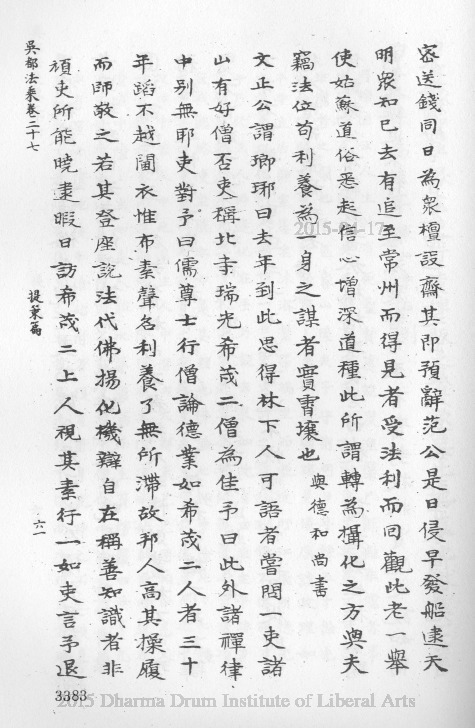 密送錢同日為眾檀設齋其即預辭范公是日侵早發船逮天
明眾知已去有追至常州而得見者受法利而回觀此老一舉
使姑蘇道俗悉起信心增深道種此所謂轉為攝化之方與夫
竊法位苟利養為一身之謀者實霄壤也 與德和尚書
文正公謂瑯琊曰去年到此思得林下人可語者嘗問一吏諸
山有好僧否吏稱北寺瑞光希茂二僧為佳予曰此外諸禪律
中別無耶吏對予曰儒尊士行僧論德業如希茂二人者三十
年蹈不越閫衣惟布素聲名利養了無所滯故邦人高其操履
而師敬之若其登座說法代佛揚化機辯自在稱善知識者非
頑吏所能曉逮暇日訪希茂二上人視其素行一如吏言予退
吳都法乘卷二十七
提策篇
六一
3383
2015-04-17
2015 Dharma Drum Institute of Liberal Arts